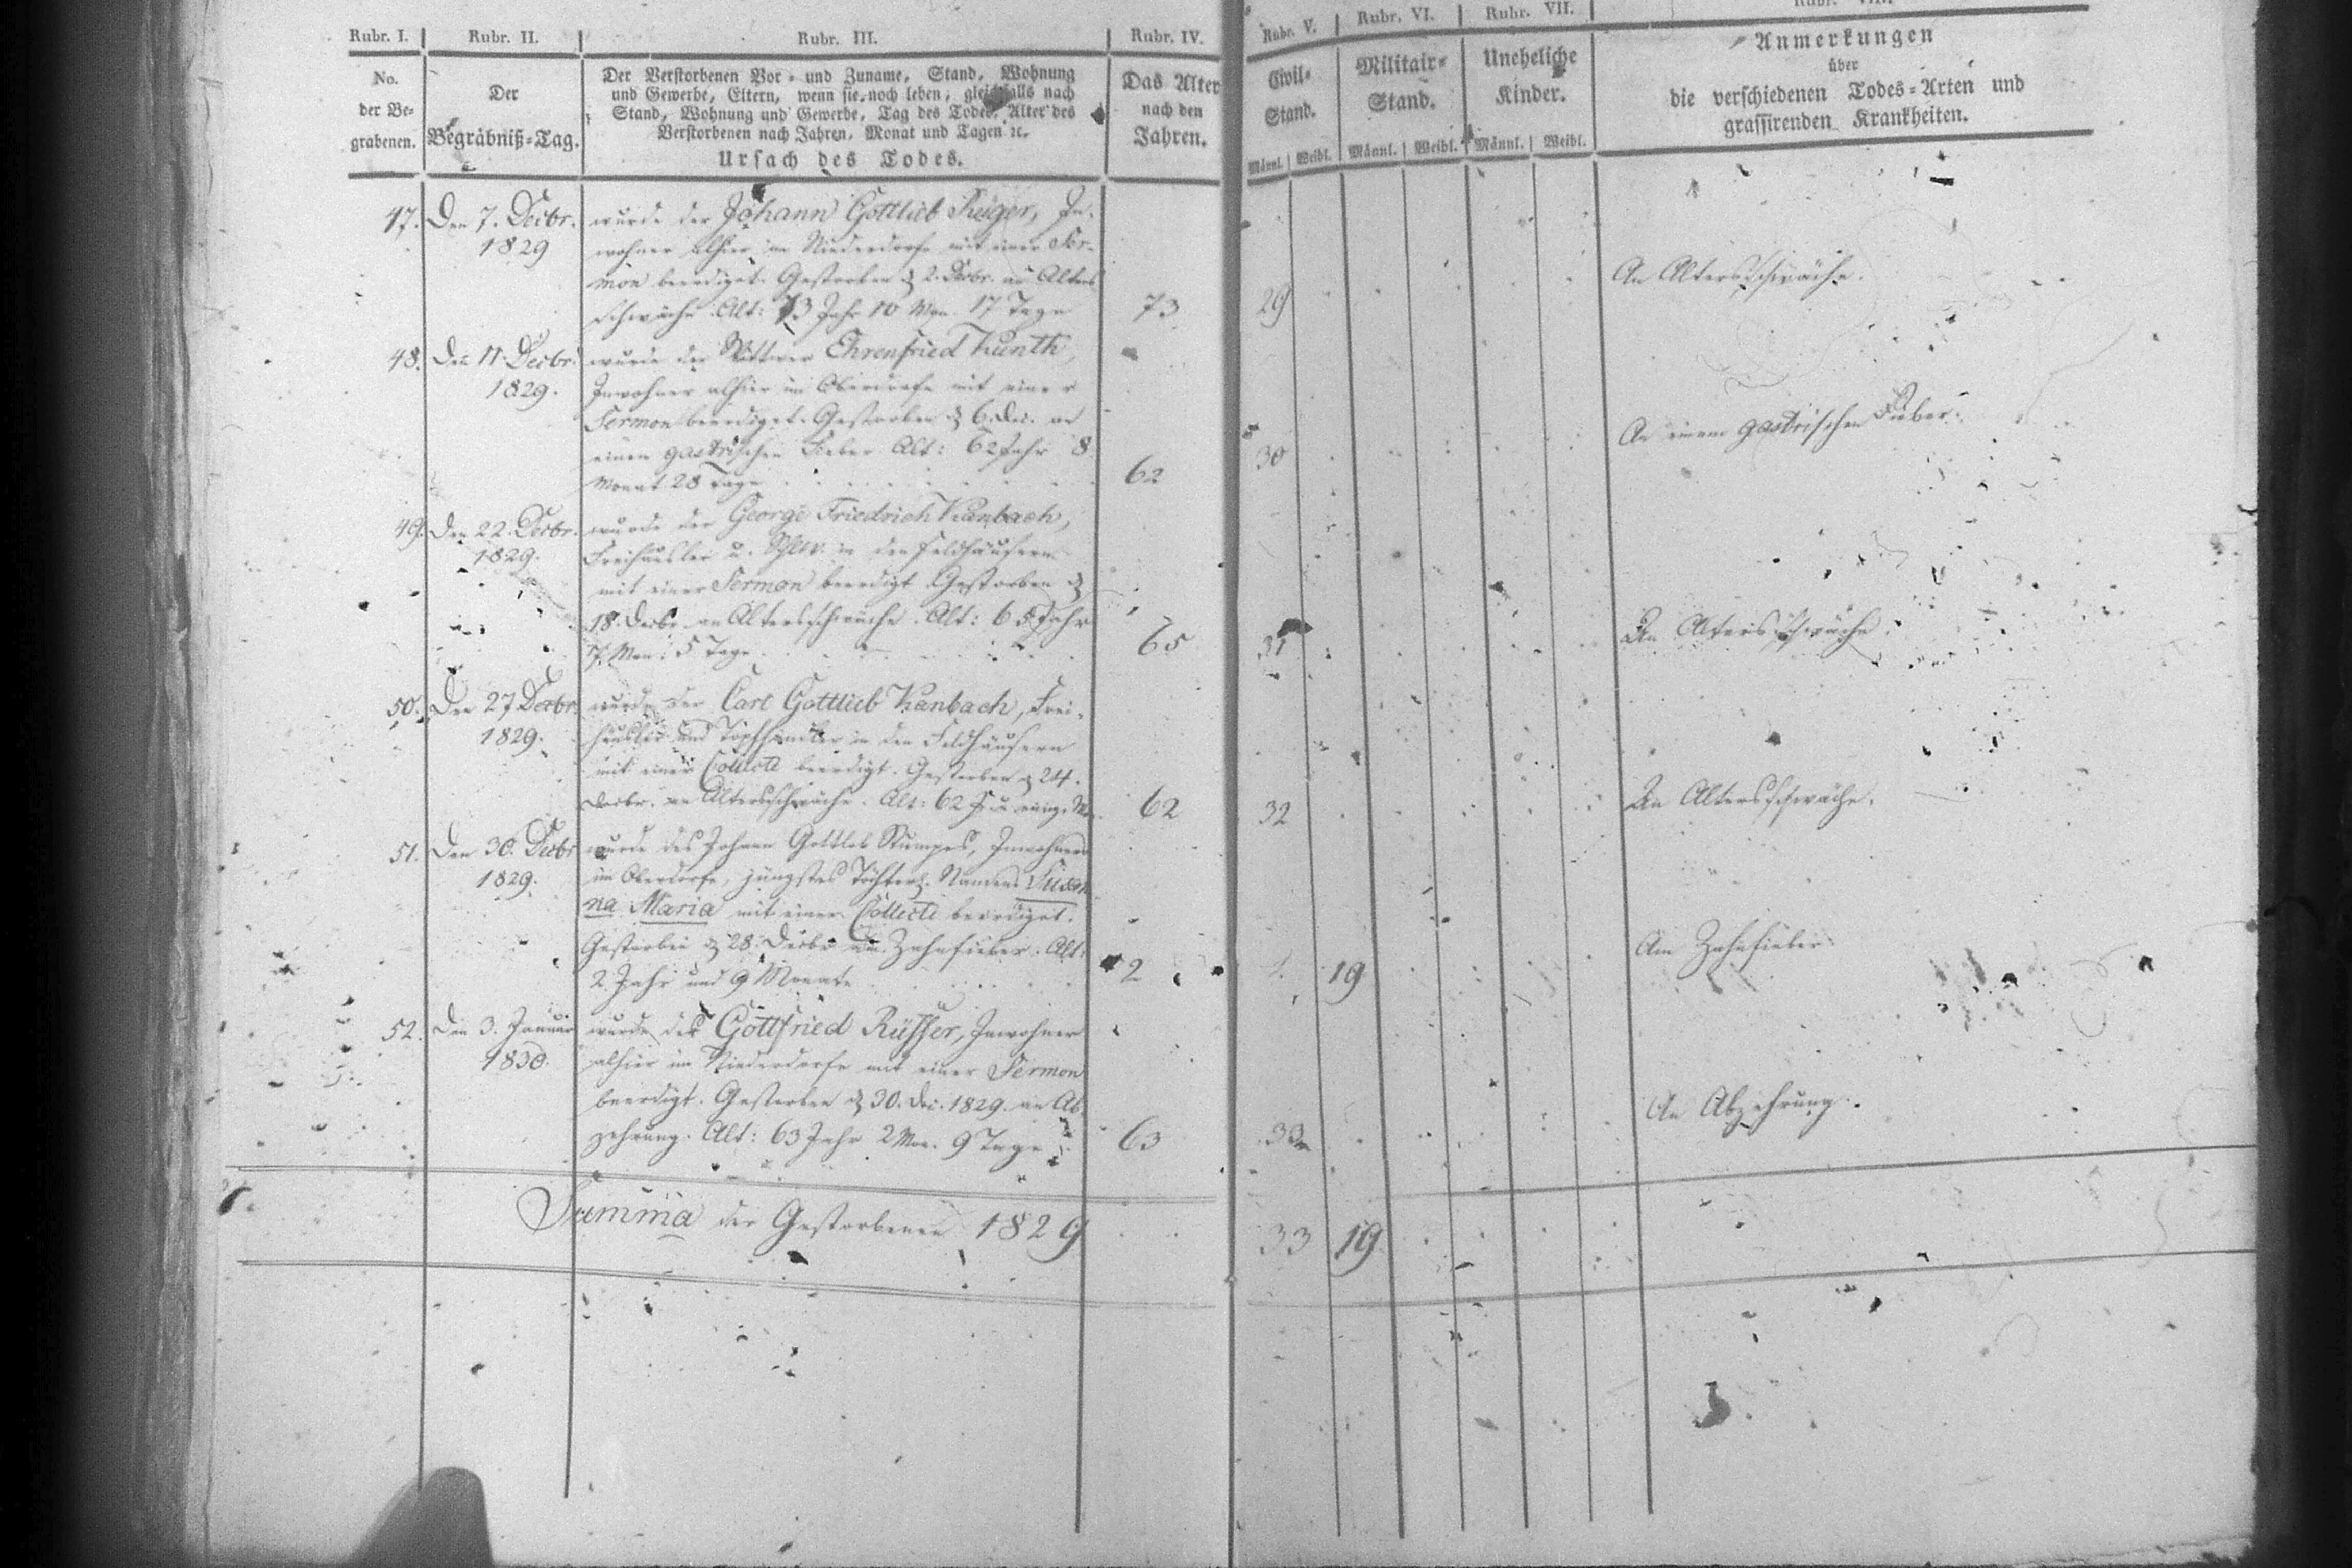 Rubr. I. Rubr. II. Rubr. III. Rubr. IV. Rubr. V. Rubr. VI. Rubr. VII.
No.
der Be-
grabenen.
Der
Begräbniß-Tag.
Der Verstorbenen Vor- und Zuname, Stand, Wohnung
und Gewerbe, Eltern, wenn sie noch leben, gleichfalls nach
Stand, Wohnung und Gewerbe, Tag des Todes, Alter des
Verstorbenen nach Jahren, Monat und Tagen ꝛc.
Ursach des Todes.
Das Alter
nach den
Jahren.
Civil-
Stand.
Männl. Weibl.
Militair-
Stand.
Männl. Weibl.
Uneheliche
Kinder.
Männl. Weibl.
Anmerkungen
über
die verschiedenen Todes-Arten und
grassirenden Krankheiten.
47. Den 7. Decbr. wurde der Johann Gottlieb In-
1829 wohner alhier im Niederdorfe mit einer Ser-
mon beerdiget. Gestorben 2. Decbr. an Alters
schwäche. Alt: 73 Jahr 10 Mon. 17 Tage 73 29 An Altersschwäche.
48. Den 11. Decbr. wurde der Wittwer Ehrenfried Kunth,
1829. Inwohner alhier im Oberdorfe mit einer
Sermon beerdiget. Gestorben 6. Dec. an
einen gastrischen Fieber Alt: 62 Jahr 8
Monat 28 Tage 62 30 An einem gastrischen Fieber.
49. Den 22. Decbr. wurde der George Friedrich Kanbach,
1829. Freihäusler u. in den Feldhäusern
mit einer Sermon beerdigt. Gestorben
18. Decbr. an Altersschwäche. Alt: 65 Jahr
7. Mon: 5 Tage 65 31 An Altersschwäche.
50. Den 27 Decbr. wurde der Carl Gottlieb Kanbach, Frei-
1829. häusler und Topfhändler in den Feldhäusern
mit einer Collecte beerdigt. Gestorben 24.
Decbr. an Altersschwäche. Alt: 62 J. u. einig. 62 32 An Altersschwäche.
51. Den 30. Decbr wurde des Johann Gottlob Stumpes, Inwohners
1829. im Oberdorfe, jüngstes Töchterl. Namens Susan
na Maria mit einer Collecte beerdiget.
Gestorben 28. Decbr am Zahnfieber. Alt:
2 Jahr und 9 Monate 2 19 Am Zahnfieber.
52. Den 3. Januar wurde der Gottfried Rüffer, Inwohner
1830. alhier im Niederdorfe mit einer Sermon
beerdigt. Gestorben 30. Dec. 1829. an Ab-
zehrung. Alt: 63 Jahr 2 Mon. 9 Tage 63 33 An Abzehrung.
Summa der Gestorbenen 1829 33 19